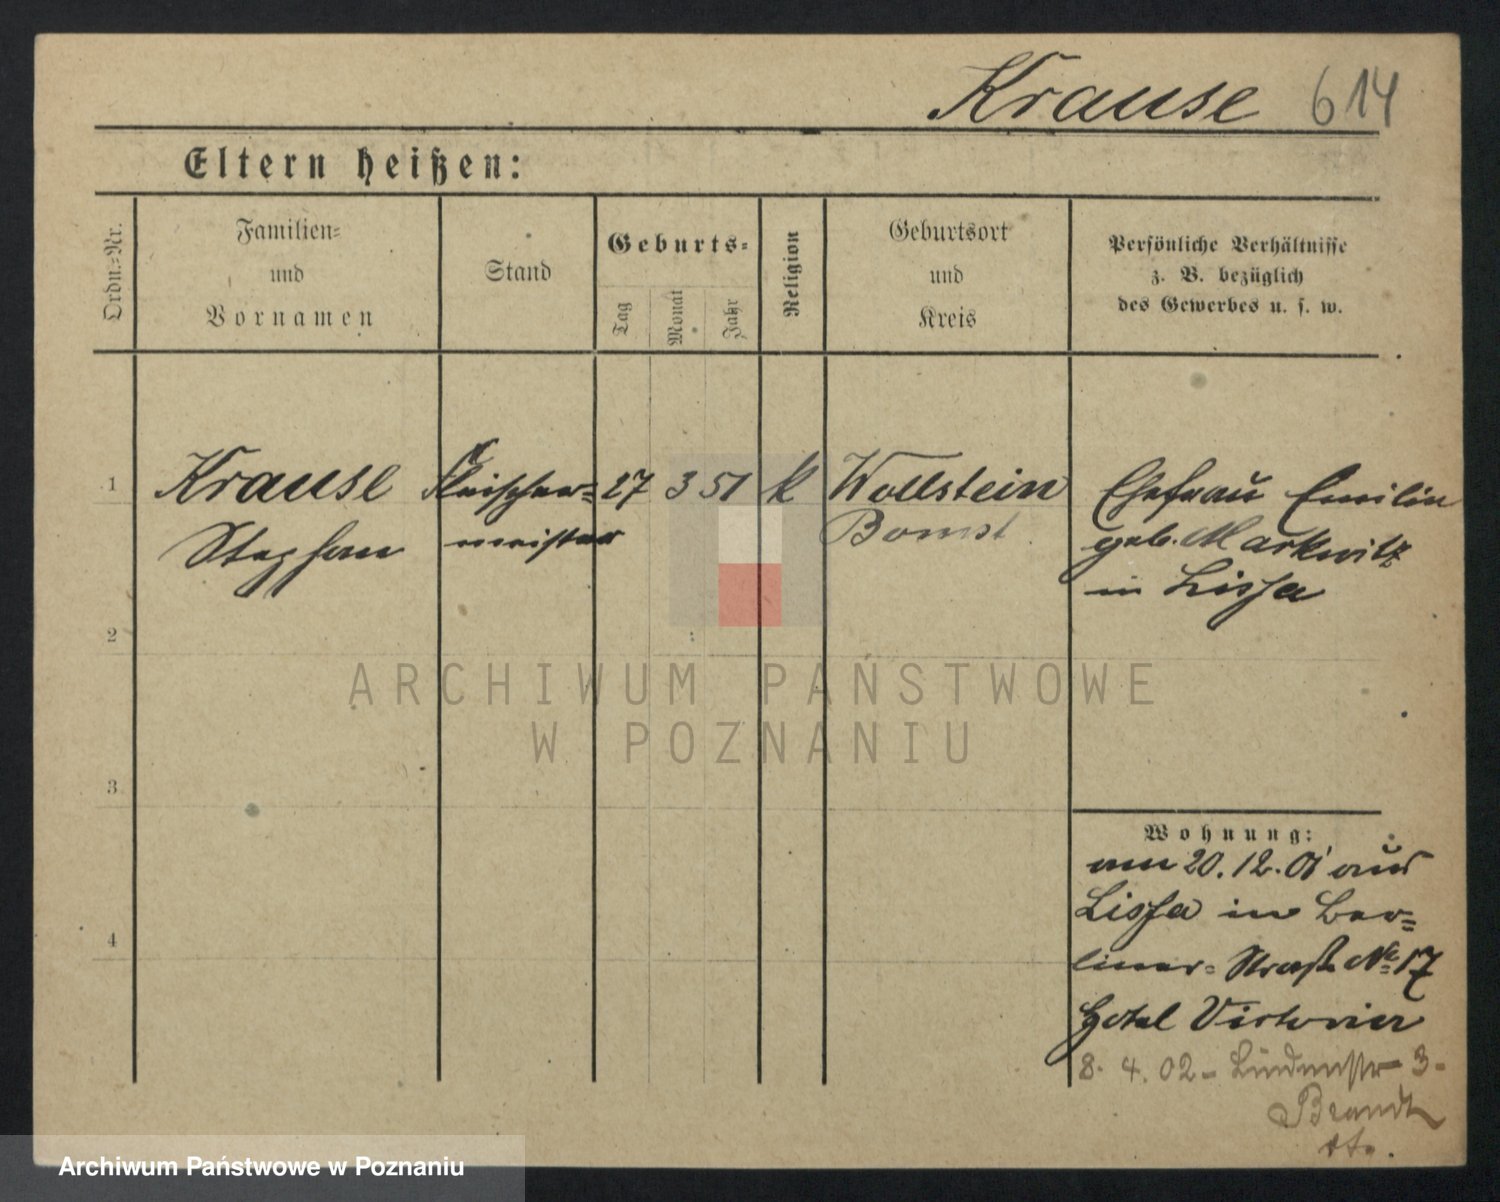 Krause 614
Eltern heißen:
Ordn.=Nr.
Familien=
und
Vornamen
Stand
Geburts=
Tag
Monat
Jahr
Religion
Geburtsort
und
Kreis
Persönliche Verhältnisse
z. B. bezüglich
des Gewerbes u. s. w.
1 Krause Fleischer= 27 3 51 k Wollstein Ehefrau Emilie
Stephan meister Bomst geb. Markwitz
in Lissa
2
ARCHIWUM PAŃSTWOWE
W POZNANIU
3
Wohnung:
am 20.12.01 aus
Lissa in Ber=
4
liner=Straße No 17
Hotel Victoria
8. 4. 02 - Lindenstr 3 -
Brandt
Archiwum Państwowe w Poznaniu